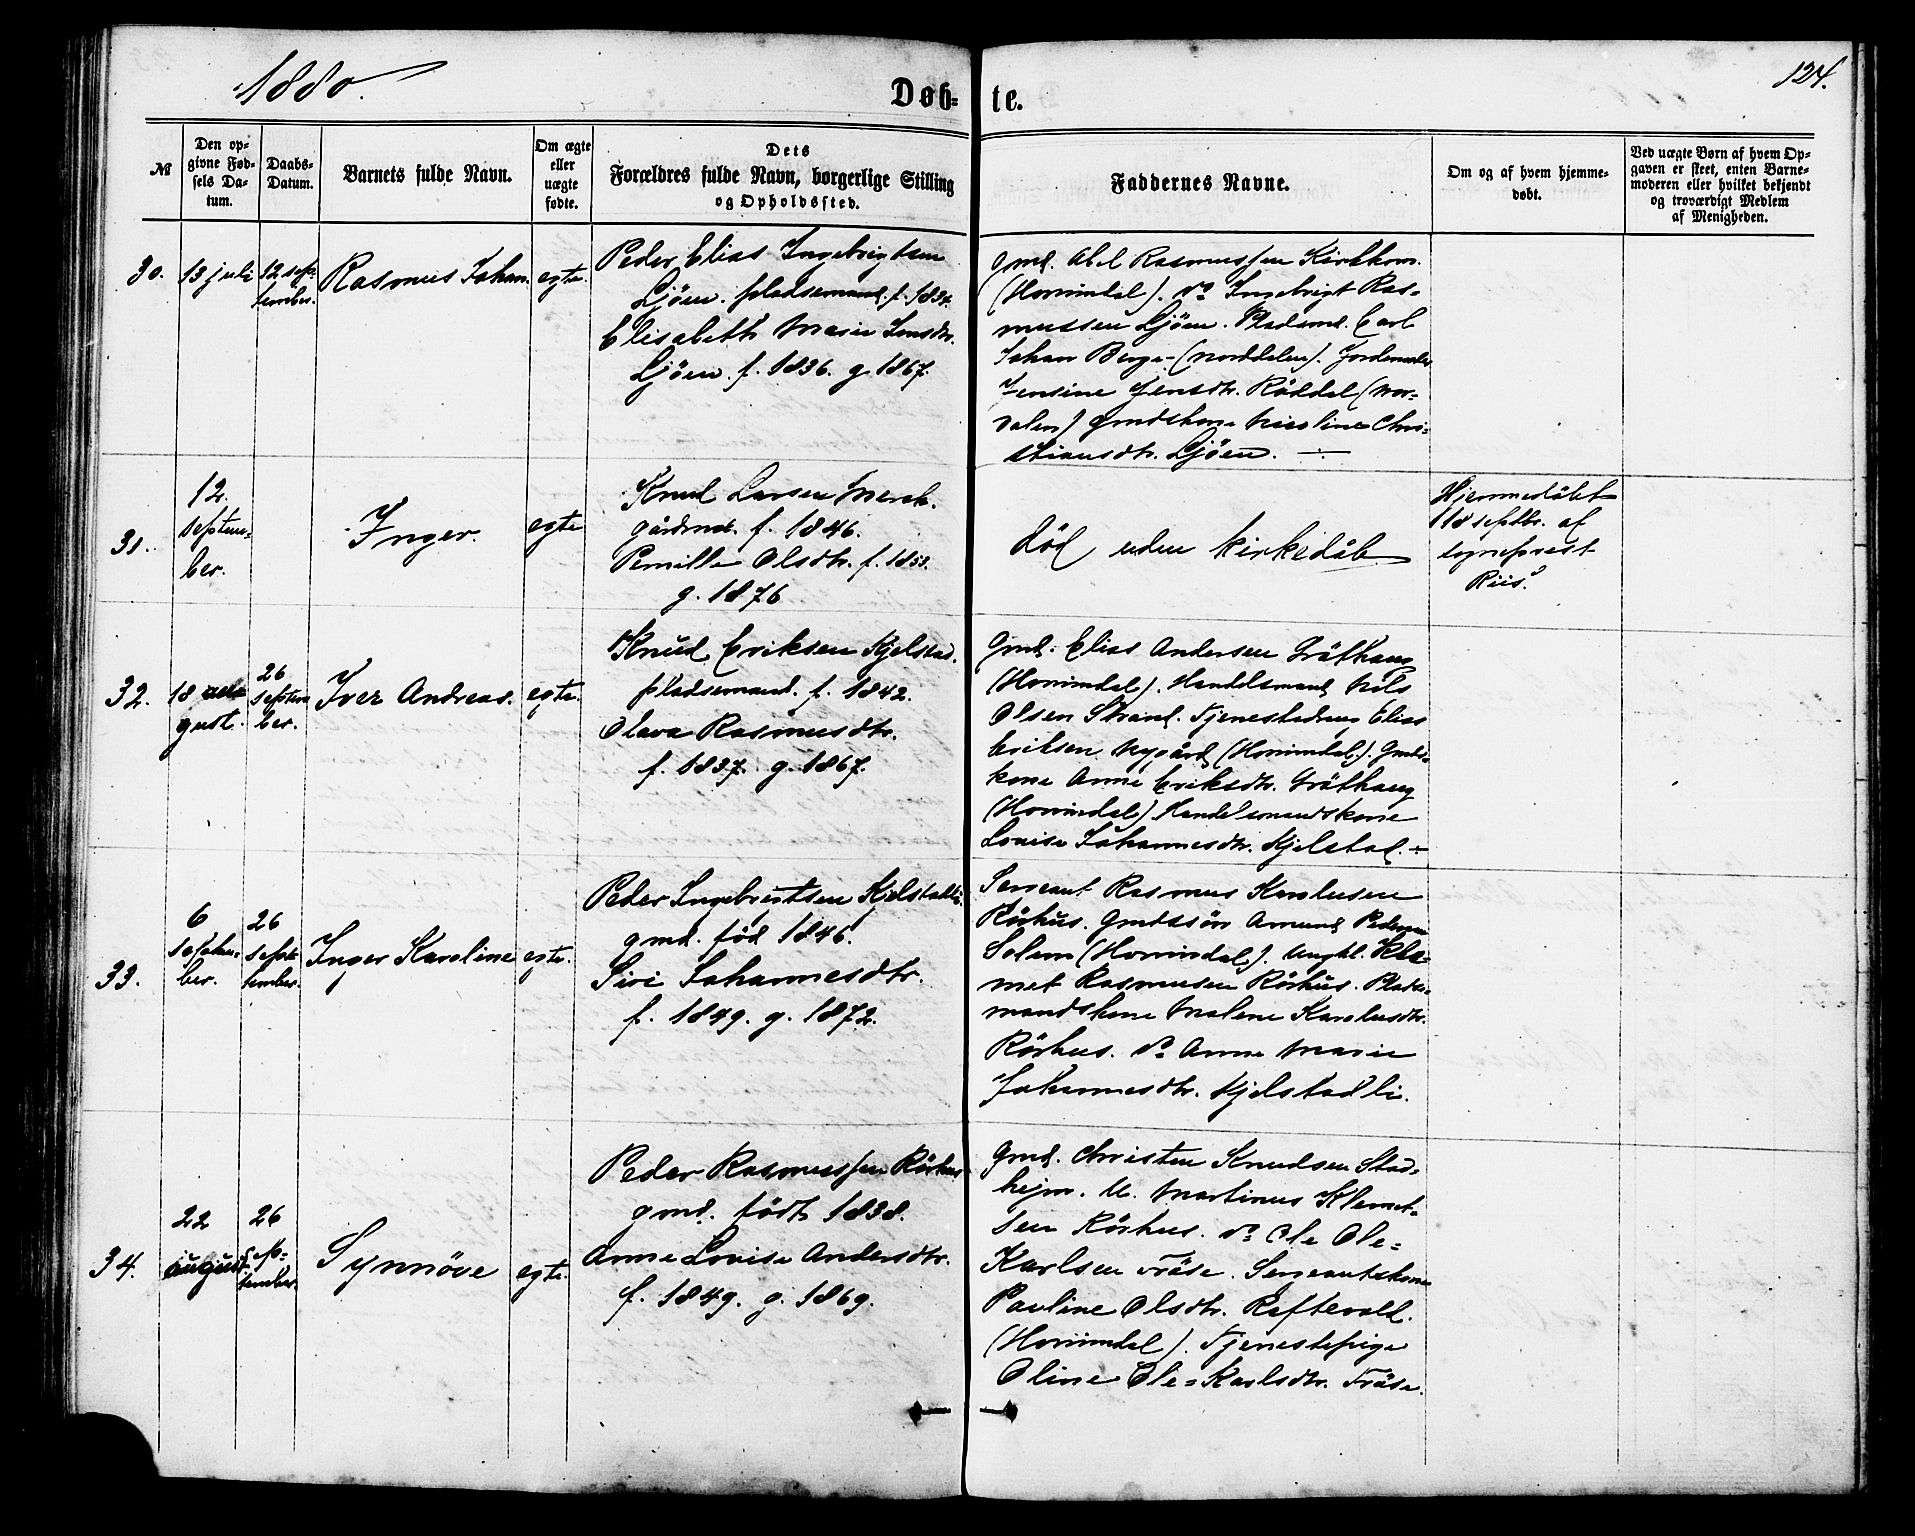 1880.
Døb-
te.
124.
№
Den op-
givne Fød-
sels Da-
tum.
Daabs-
Datum.
Barnets fulde Navn.
Om ægte
eller
uægte
fødte.
Dets
Forældres fulde Navn, borgerlige Stilling
og Opholdssted.
Faddernes Navne.
Om og af hvem hjemme-
døbt.
Ved uægte Børn af hvem Op-
gaven er skeet, enten Barne-
moderen eller hvilket bekjendt
og troværdigt Medlem
af Menigheden.
30.
13 juli
12 sep-
tember.
Rasmus Johan.
egte.
Peder Elias Ingebrigtsen
Ljöen. pladsemand. f. 1834.
Elisabeth Marie Jensdtr.
Ljöen. f. 1836. g 1867.
gmd. Abel Rasmussen Kirkhorn.
(Hornindal). do Ingebrigt Ras-
mussen Ljöen. Pladsmd. Carl
Johan Berge (Norddalen). Jordemoder
Jensine Jensdtr. Röddal (Nor-
dalen) gmdskone Nicoline Chri-
stiansdtr. Ljöen.
31.
12.
septem-
ber.
Inger.
egte
Knud Larsen Merok.
gårdmd. f. 1846.
Pernille Olsdtr. f. 1853.
g. 1876
död uden kirkedåb
Hjemmedöbt
18 septbr. af
sogneprest
Riis.
32.
18 au-
gust.
26
septem
ber.
Iver Andreas.
egte.
Knud Eriksen Kjelstad.
pladsemand. f. 1842.
Olava Rasmusdtr.
f. 1837. g. 1867.
Gmd. Elias Andersen Gråthaug
(Hornindal). Handelsmand Nils
Olsen Strand. Tjenestedreng Elias
Eriksen Nygård (Hornindal). Gmds-
kone Anne Eriksdtr. Gråthaug
(Hornindal) Handelsmandskone
Lovise Johannesdtr. Kjelstad.
33.
6
septem-
ber.
26
sept-
tember.
Inger Karoline
egte.
Peder Ingebrigtsen Kjelstadli
gmd. född 1846.
Siri Johannesdtr.
f. 1849. g. 1872.
Sergeant Rasmus Karolusen
Rörhus. Gmdssön Amund Pedersen
Solem (Hornindal). Ungkl. Kle-
met Rasmusen Rörhus. Plads-
mandskone Malene Karolusdtr.
Rörhus. do Anne Marie
Johannesdtr. Kjelstadli.
34.
22
august
26
sep-
tember.
Synnöve
egte.
Peder Rasmussen Rörhus
gmd. född 1838.
Anne Lovise Andersdtr.
f. 1849. g. 1869.
gmd. Christen Knudsen Stad-
hejm. U. Martinus Klemet-
sen Rörhus. do Ole Ole-
Karlsen Fröse. Sergeantskone
Pauline Olsdtr. Raftevold.
(Hornindal). Tjenestepige
Oline Ole-Karlsdtr. Fröse.